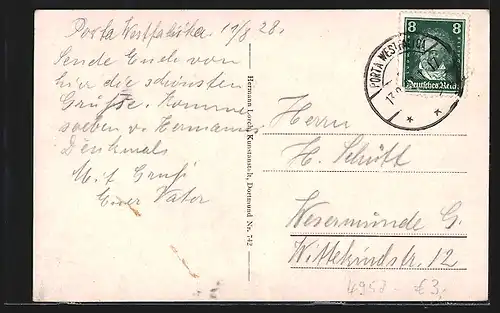 Porta Westfalika 17/8 28.
Sende Euch von
hier die schönsten
Grüße. Komme
soeben v. Hermanns
Denkmals
Mit Gruß
Euer Vater
Hermann Lorch, Kunstanstalt, Dortmund Nr. 742
8 8
Deutsches Reich
PORTA WESTFALICA
Herrn
H. Schütt
Wesermünde G.
Wittekindstr. 12
4957 - €3,-